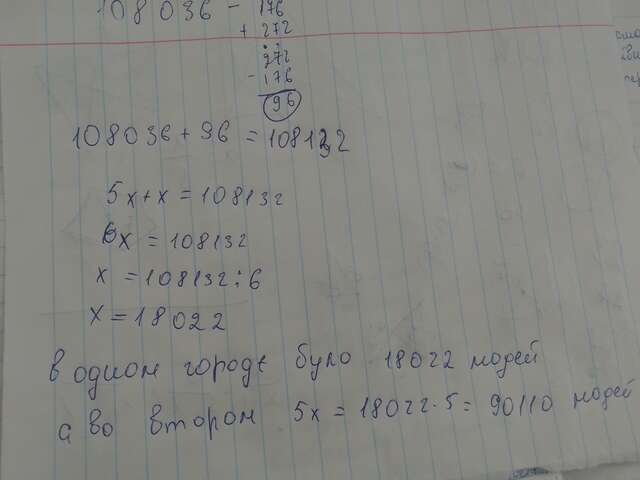 108036 - 176
+ 272
272
- 176
96
108036 + 96 = 108132
5x + x = 108132
6x = 108132
x = 108132 : 6
x = 18022
в одном городе було 18022 людей
а во втором 5x = 18022 · 5 = 90110 людей